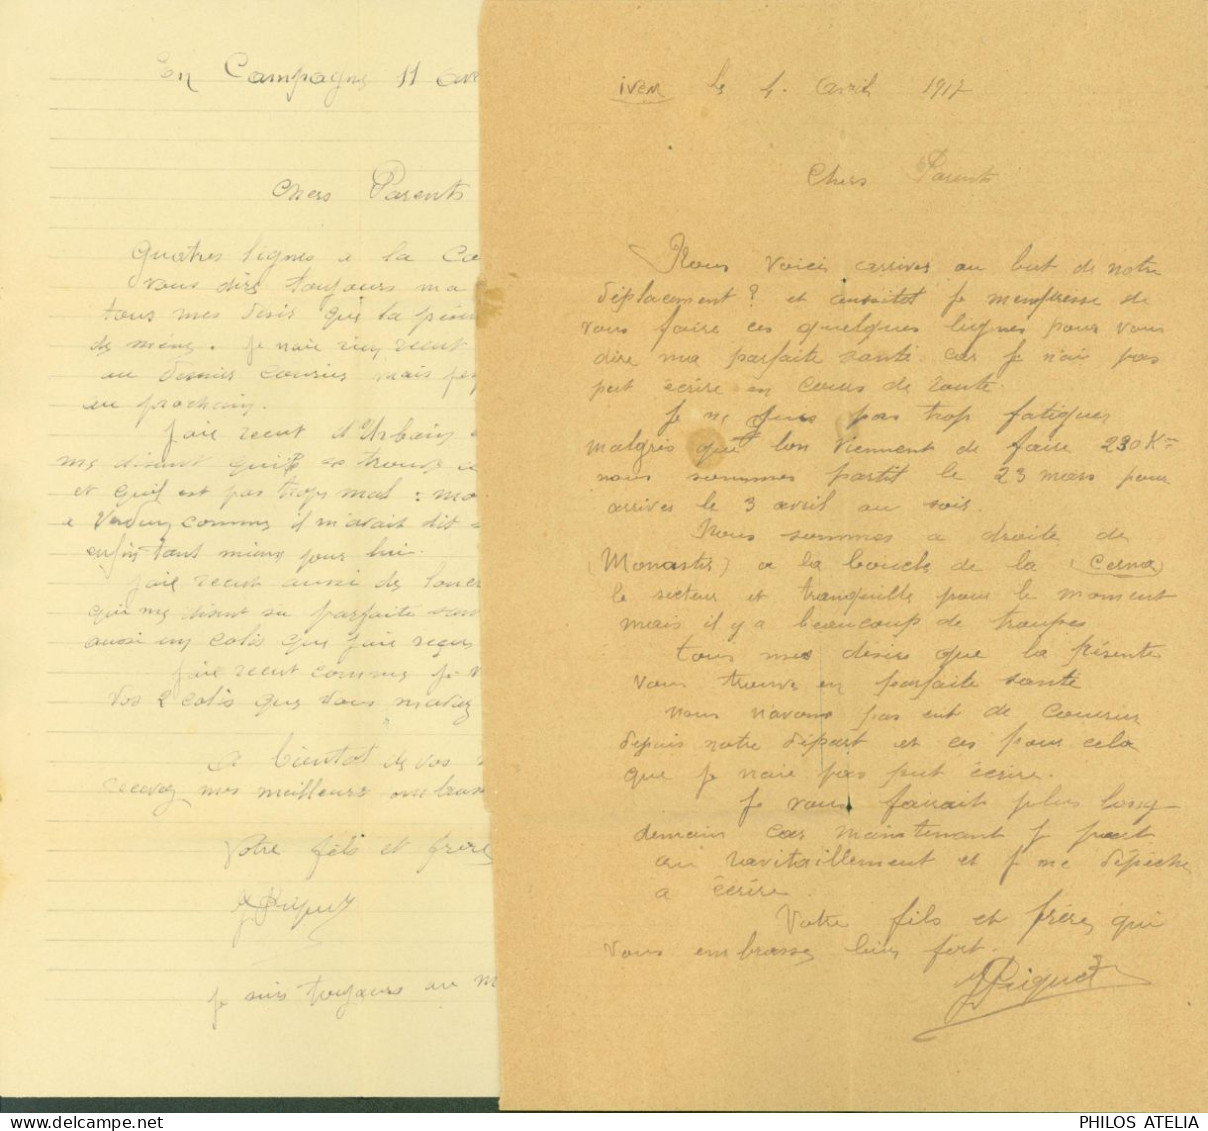 En Campagne 11 avr
Chers Parents
Quatres lignes a la
vous dire toujours ma
tous mes désir que la prése
de même. Je naie rien recut
au dernier courier mais
au prochain.
Jaie recut d'Urbain
me disant quil se trouve
et quil est pas trops mal : mo
a Verdun comme il m'avait dit
enfin tant mieux pour lui.
Jaie recut aussi de
qui me disent en parfaite sant
aussi un colis que jaie reçus
jaie recut comme je
vos 2 colis que vous mavez
A bientot de vos
recevez mes meilleurs embrass
Votre fils et frère
J Piquet
Je suis toujours au m
iven le 4. Avril 1917
Chers Parents
Nous voici arrives au but de notre
déplacement? et aussitot je mempresse de
vous faire ces quelques lignes pour vous
dire ma parfaite santé. car je n'ai pas
put écrire en cours de route.
Je ne suis pas trop fatigues
malgrès que lon viennent de faire 230 Km
nous sommes partit le 23 mars pour
arrives le 3 avril au soir.
Nous sommes a droite de
(Monastir) a la boucle de la (Cerna)
le secteur et tranquille pour le moment
mais il y a beaucoup de troupes
tous mes désire que la présente
vous trouve en parfaite santé
nous navons pas eut de courier
depuis notre départ et ces pour cela
que je naie pas put écrire.
Je vous fairait plus long
demain car maintenant je part
au ravitaillement et je me dépèche
a écrire.
Votre fils et frère qui
vous embrasse bien fort.
J Piquet
PHILOS ATELIA